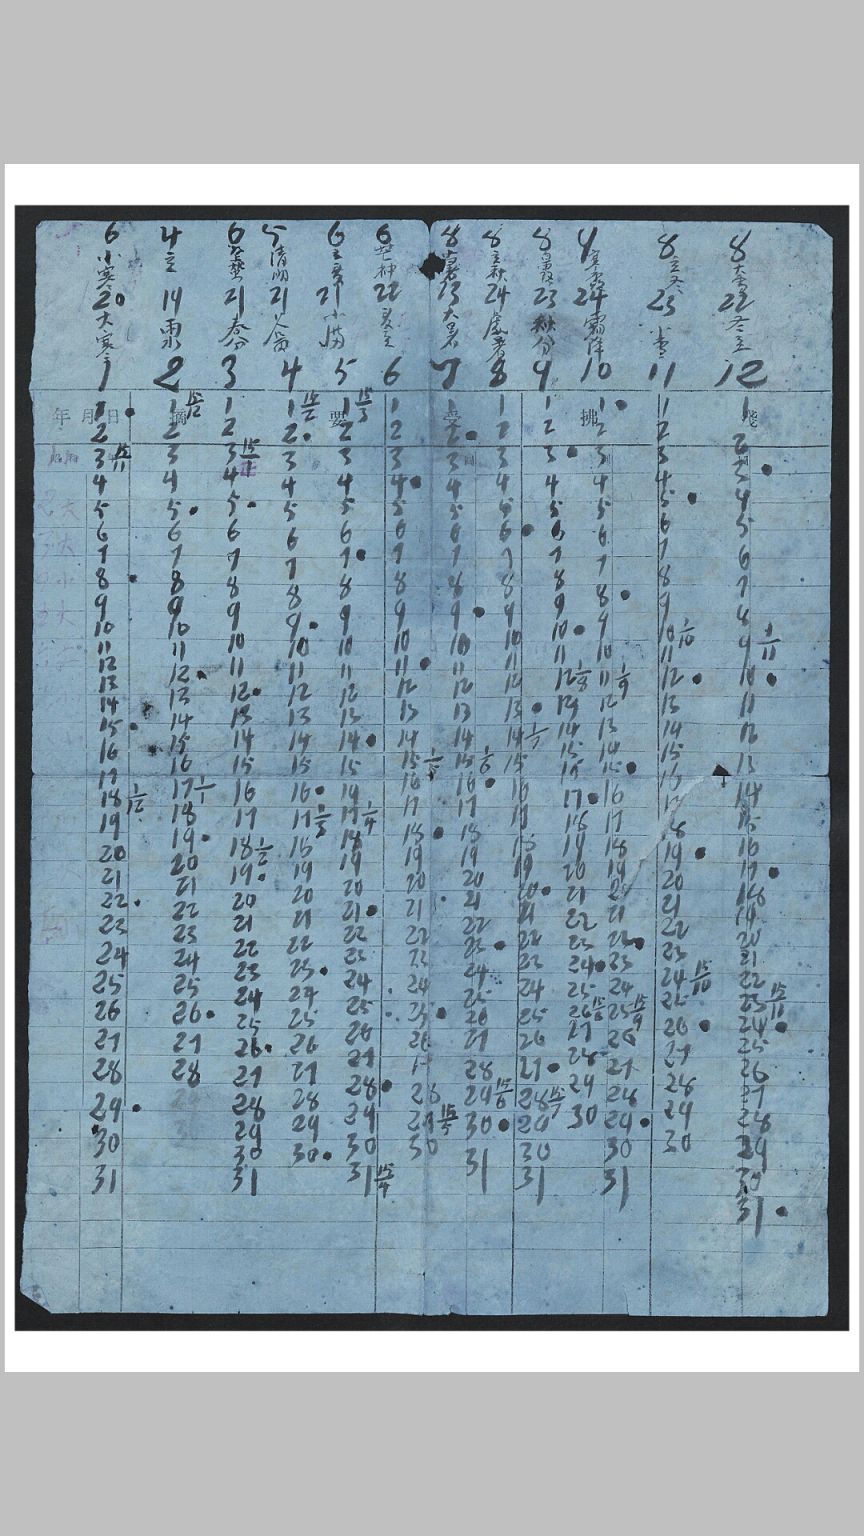 6 小寒 20 大寒
4 立 19 雨
6 21 春分
5 清明 21
6 立夏 21 小满
6 22 夏至
8 小暑 23 大暑
8 立秋 24 處暑
8 白露 23 秋分
9 寒露 24 霜降
8 立冬 23 小雪
8 大雪 22 冬至
1 2 3 4 5 6 7 8 9 10 11 12
年 月 日 摘 要 受 拂 殘
1 2 3 15/11 4 5 6 7 8 9 10 11 12 13 14 15 16 17 18 1/12 19 20 21 22 23 24 25 26 27 28 29 30 31
1 15/12 2 3 4 5 6 7 8 9 10 11 12 13 14 15 16 17 1/1 18 19 20 21 22 23 24 25 26 27 28
1 2 3 15/正 4 5 6 7 8 9 10 11 12 13 14 15 16 17 18 1/2 19 20 21 22 23 24 25 26 27 28 29 30 31
1 15/2 2 3 4 5 6 7 8 9 10 11 12 13 14 15 16 17 1/3 18 19 20 21 22 23 24 25 26 27 28 29 30
1 15/3 2 3 4 5 6 7 8 9 10 11 12 13 14 15 16 17 1/4 18 19 20 21 22 23 24 25 26 27 28 29 30 31 15/4
1 2 3 4 5 6 7 8 9 10 11 12 13 14 15 1/5 16 17 18 19 20 21 22 23 24 25 26 27 28 29 15/5 30
1 2 3 4 5 6 7 8 9 10 11 12 13 14 15 1/6 16 17 18 19 20 21 22 23 24 25 26 27 28 29 15/6 30 31
1 2 3 4 5 6 7 8 9 10 11 12 13 14 1/7 15 16 17 18 19 20 21 22 23 24 25 26 27 28 15/7 29 30 31
1 2 3 4 5 6 7 8 9 10 11 12 1/8 13 14 15 16 17 18 19 20 21 22 23 24 25 26 15/8 27 28 29 30
1 2 3 4 5 6 7 8 9 10 11 1/9 12 13 14 15 16 17 18 19 20 21 22 23 24 25 15/9 26 27 28 29 30 31
1 2 3 4 5 6 7 8 9 10 1/10 11 12 13 14 15 16 17 18 19 20 21 22 23 24 15/10 25 26 27 28 29 30
1 2 3 4 5 6 7 8 9 1/11 10 11 12 13 14 15 16 17 18 19 20 21 22 23 15/11 24 25 26 27 28 29 30 31